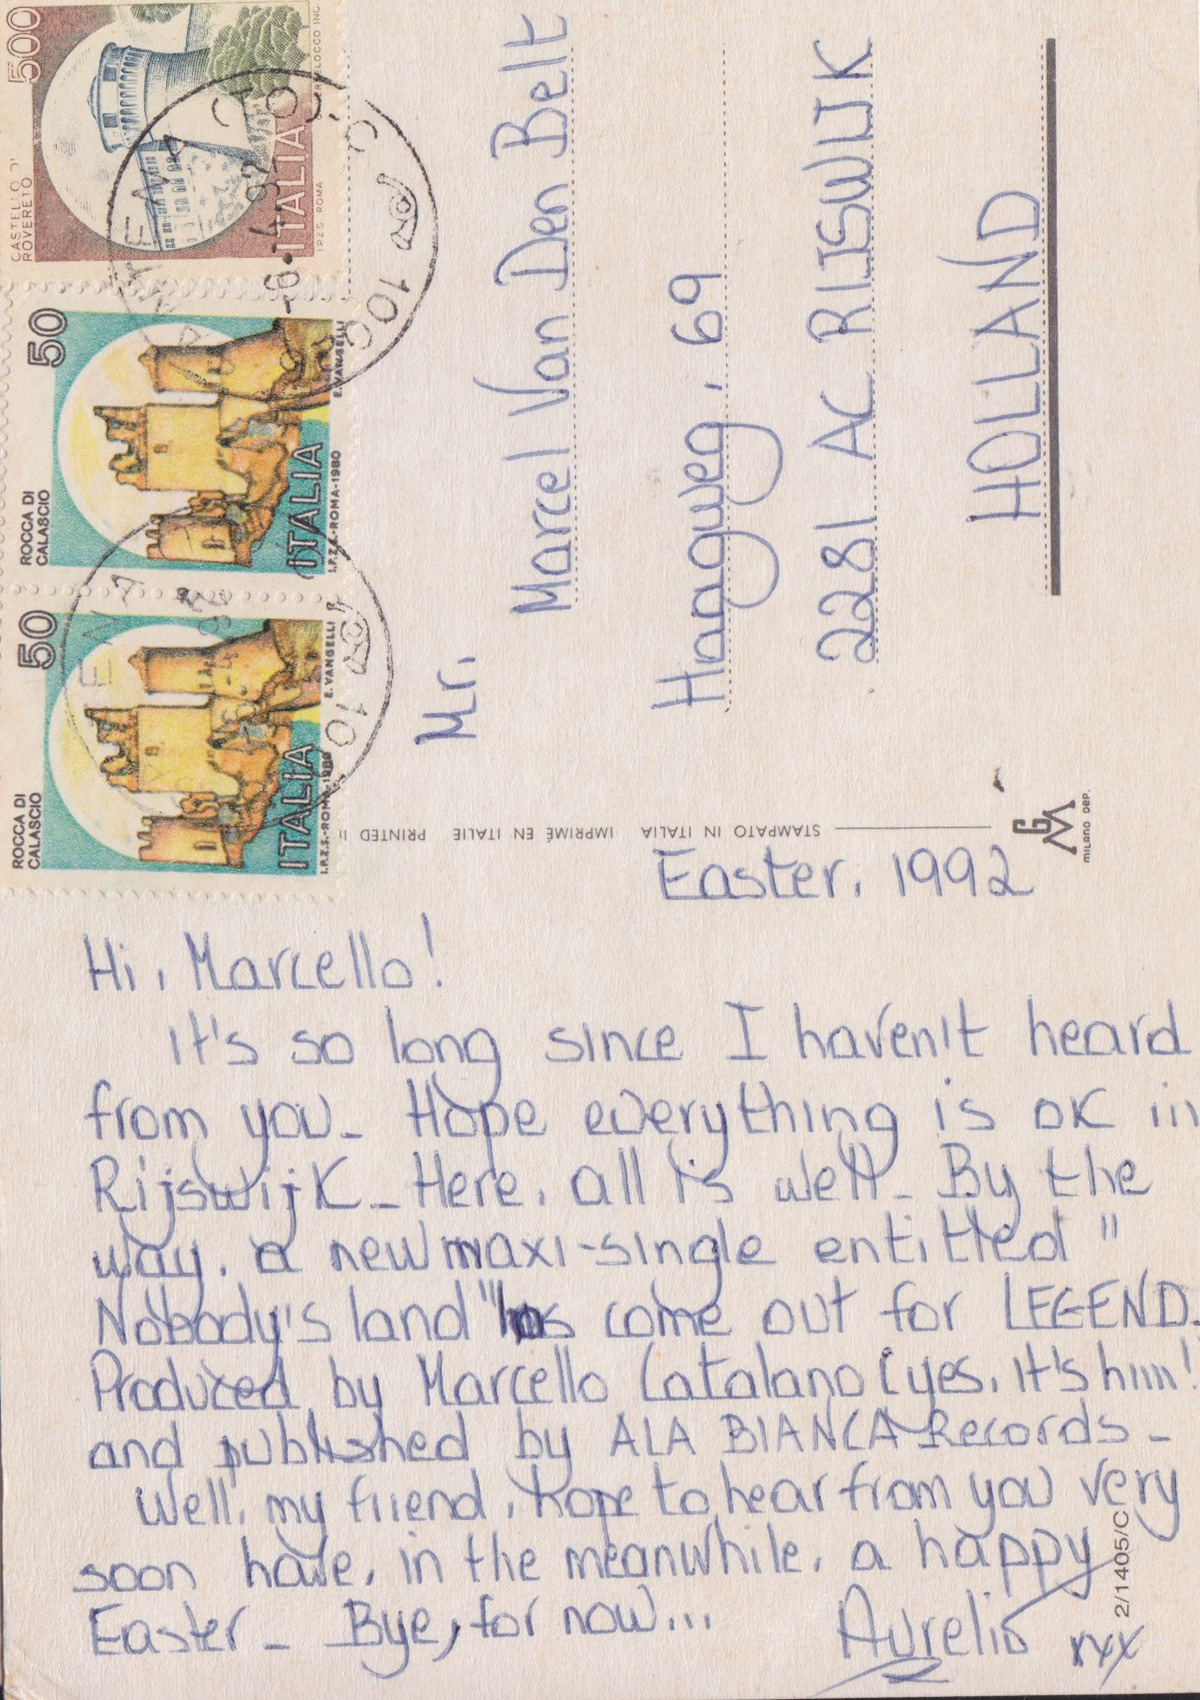 500
CASTELLO DI
ROVERETO
ITALIA
I.P.Z.S. ROMA
-6.-4.92
50
ROCCA DI
CALASCIO
ITALIA
I.P.Z.S.-ROMA-1980
E. VANGELLI
50
ROCCA DI
CALASCIO
ITALIA
I.P.Z.S.-ROMA-1980
E. VANGELLI
92
Mr.
Marcel Van Den Belt
Haagweg, 69
2281 AC RIJSWIJK
HOLLAND
STAMPATO IN ITALIA IMPRIMÉ EN ITALIE PRINTED
MILANO DEP.
Easter, 1992
Hi, Marcello!
It's so long since I haven't heard
from you_ Hope everything is OK in
Rijswijk_ Here, all is well_ By the
way, a new maxi-single entitled "
Nobody's land" has come out for LEGEND.
Produced by Marcello Catalano (yes, it's him!
and published by ALA BIANCA Records_
Well, my friend, hope to hear from you very
soon have, in the meanwhile, a happy
Easter_ Bye, for now...
Aurelio xxx
2/1405/C